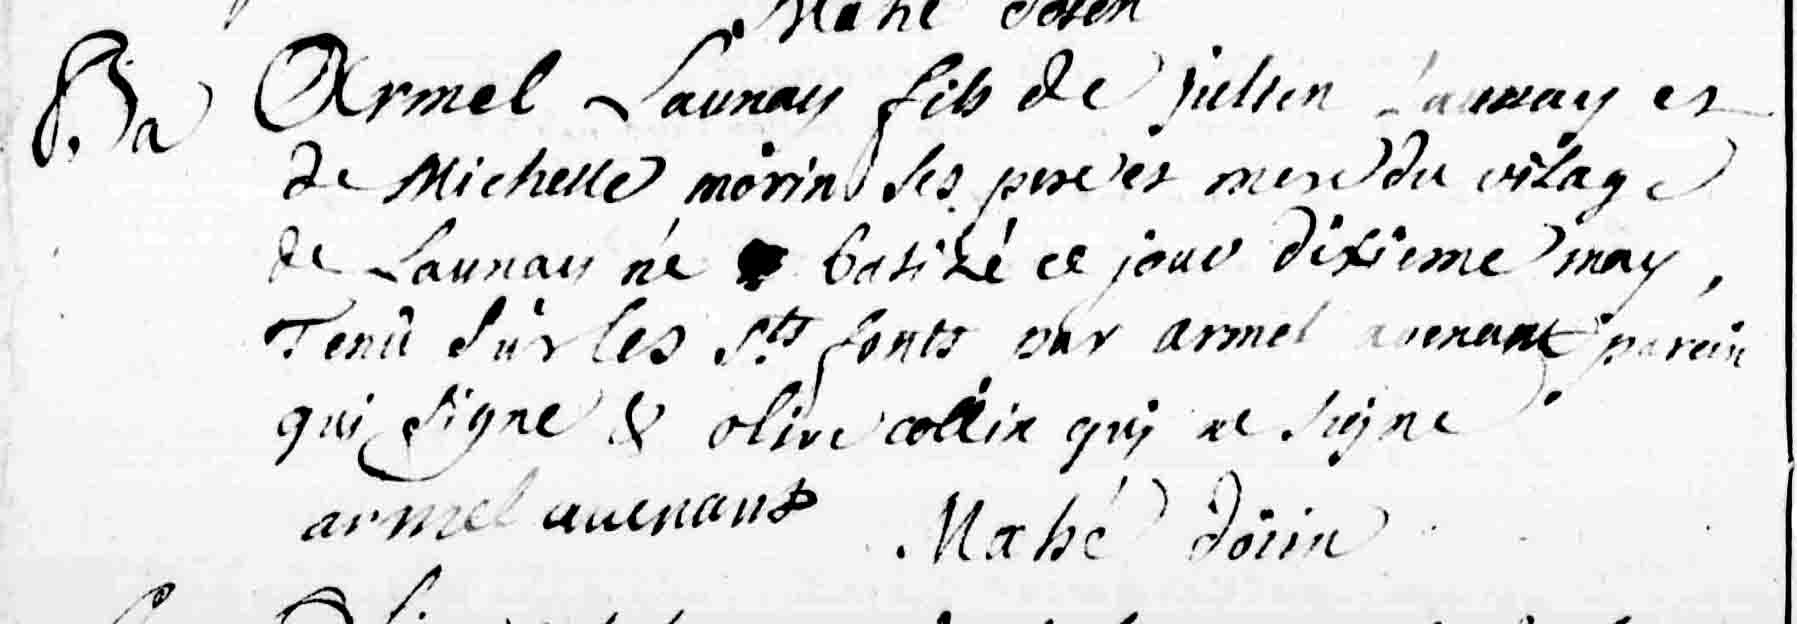 Mahé
Ba Armel Launay fils de julien Launay et
de Michelle morin ses pere et mere du vilage
de Launay né batizé ce jour dixieme may,
Tenû sur les Sts fonts par armel avenant parein
qui signe & olive collin qui ne signe
armel avenant Mahé